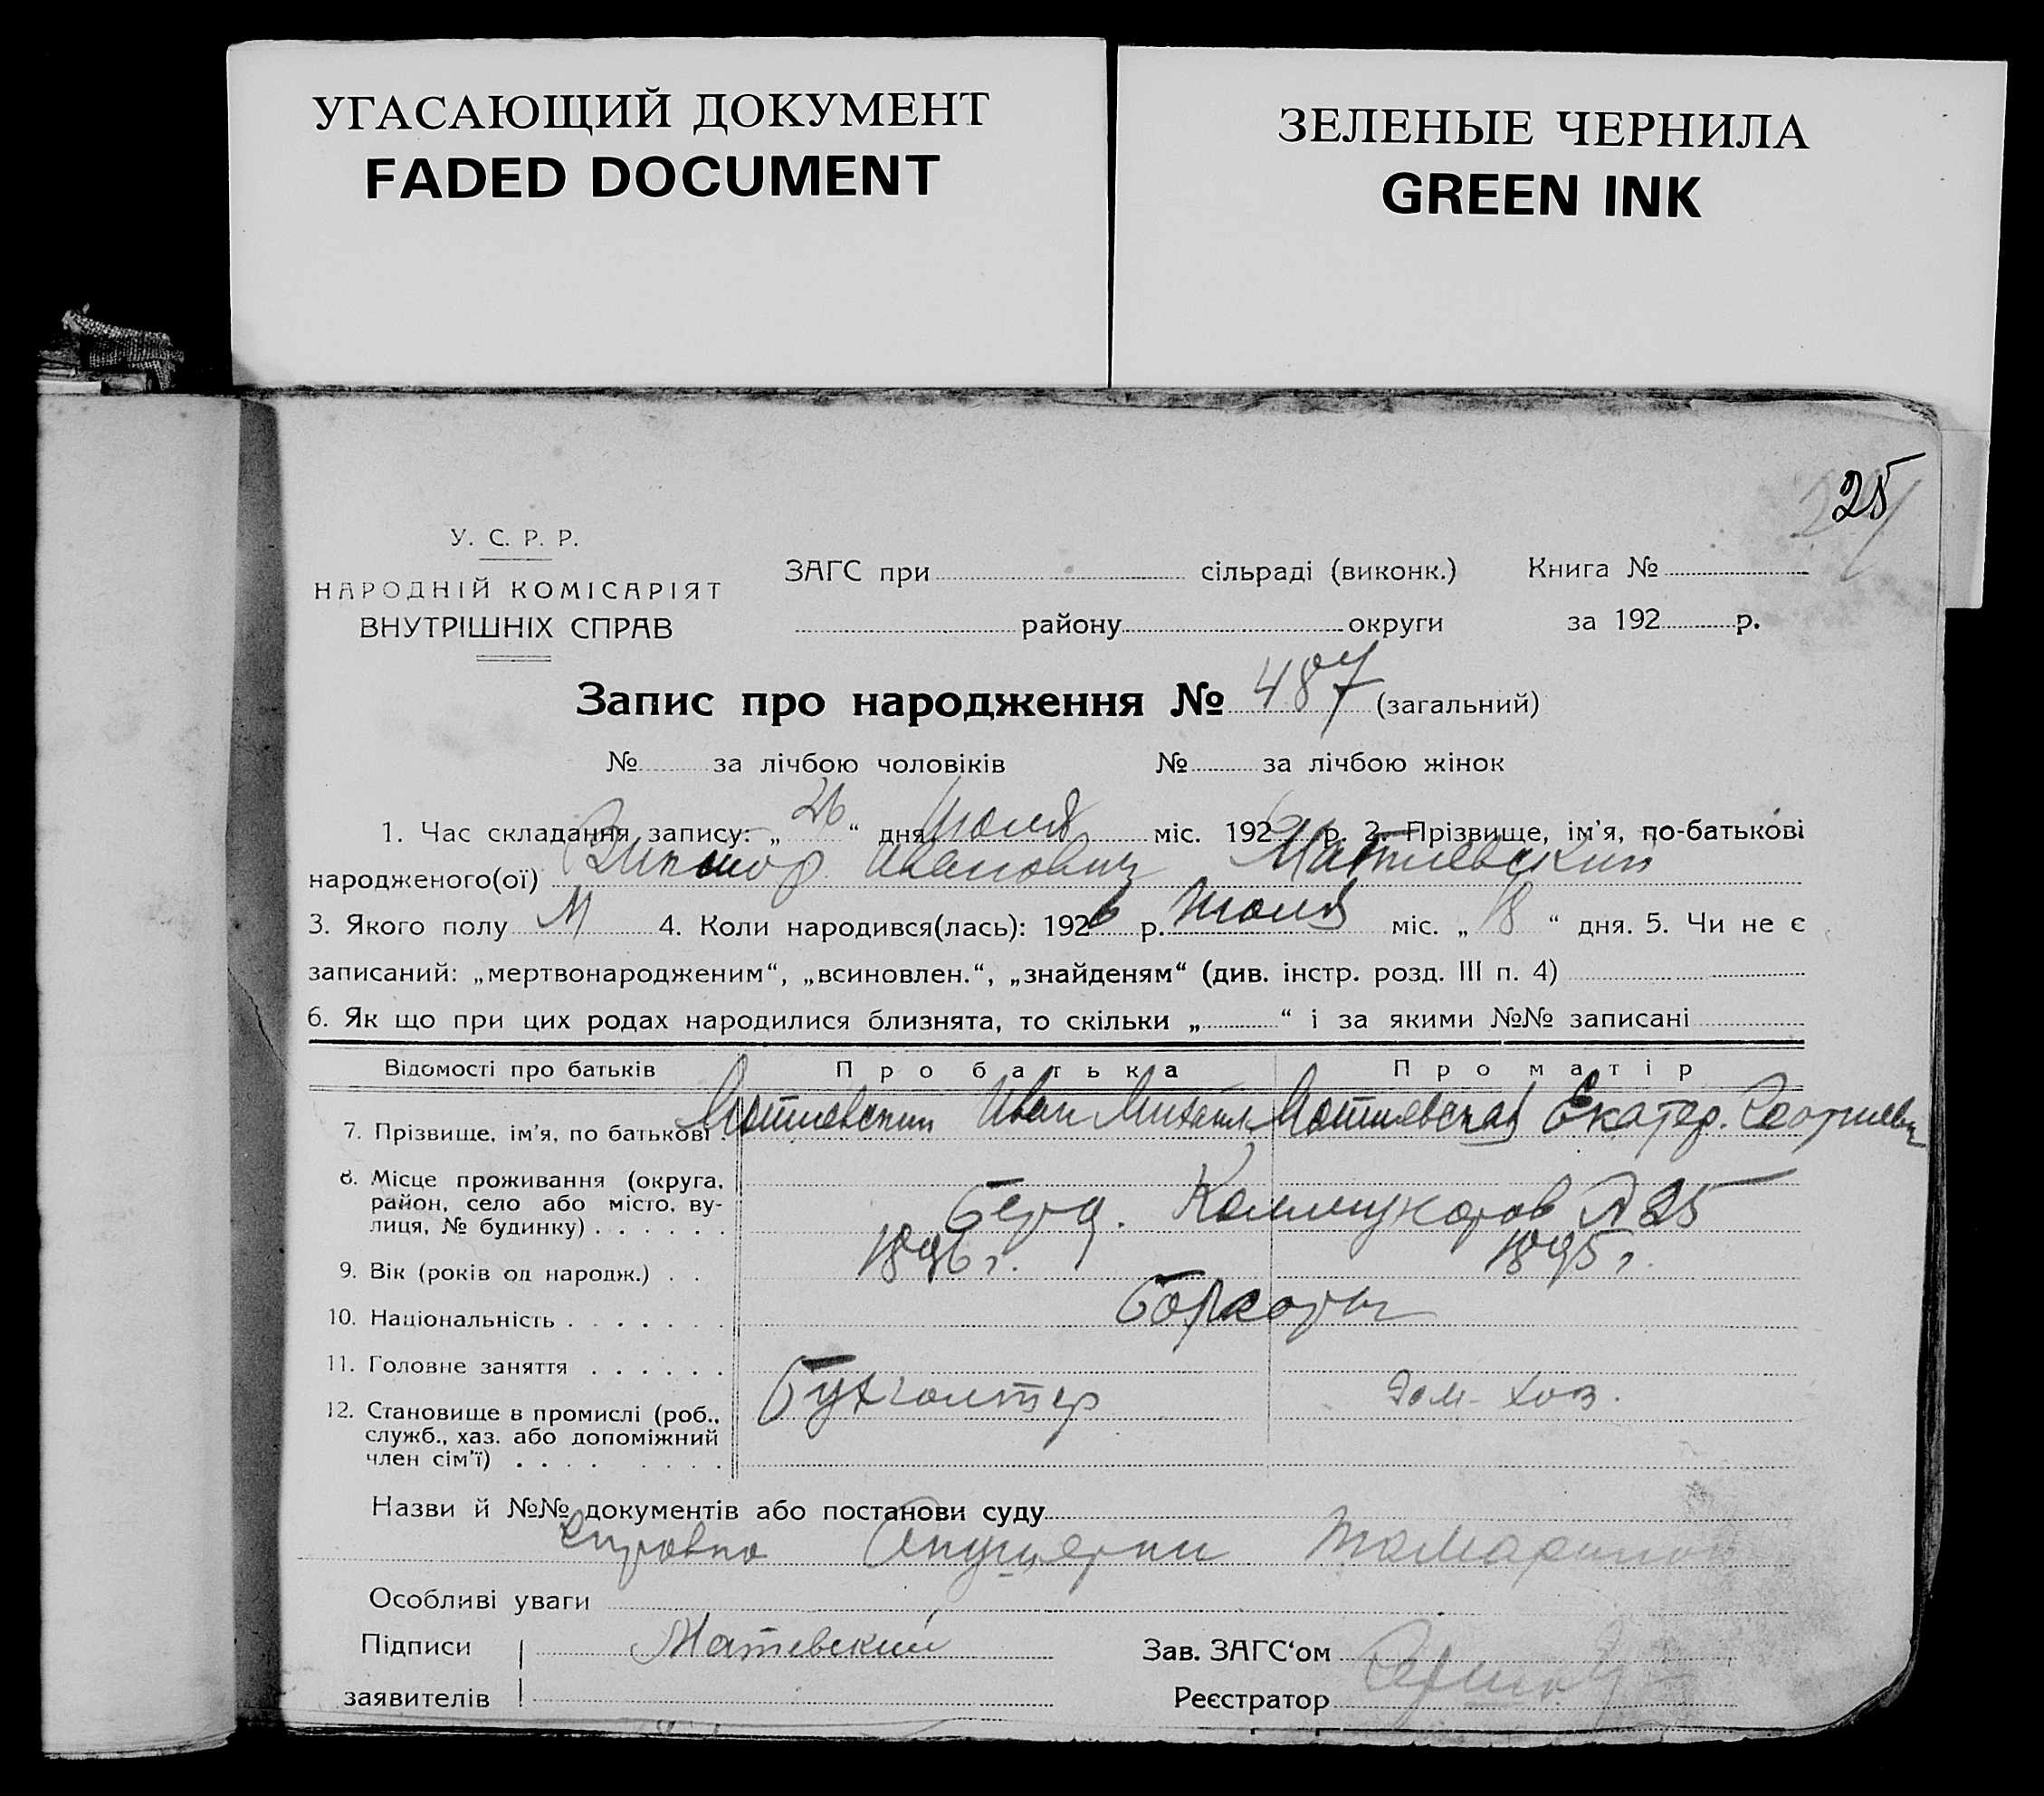 УГАСАЮЩИЙ ДОКУМЕНТ
FADED DOCUMENT
ЗЕЛЕНЫЕ ЧЕРНИЛА
GREEN INK
25
У. С. Р. Р.
НАРОДНІЙ КОМІСАРІЯТ
ВНУТРІШНІХ СПРАВ
ЗАГС при сільраді (виконк.) Книга №
району округи за 192 р.
Запис про народження № 487 (загальний)
№ за лічбою чоловіків № за лічбою жінок
1. Час складання запису: „ 26 “ дня Июля міс. 1926 р. 2. Прізвище, ім'я, по-батькові
народженого(ої) Виктор Иванович Матиевский
3. Якого полу М 4. Коли народився(лась): 1926 р. Июля міс. „ 18 “ дня. 5. Чи не є
записаний: „мертвонародженим“, „всиновлен.“, „знайденям“ (див. інстр. розд. III п. 4)
6. Як що при цих родах народилися близнята, то скільки „ “ і за якими №№ записані
Відомості про батьків Про батька Про матір
7. Прізвище, ім'я, по батькові Матиевский Иван Михаил. Матиевская Екатер.
8. Місце проживання (округа, район, село або місто, ву-
лиця, № будинку) Берд. Коммунаров № 25
9. Вік (років од народж.) 1896 г. 1895 г.
10. Національність
11. Головне заняття
12. Становище в промислі (роб., Бухгалтер дом. хоз.
служб., хаз. або допоміжний
член сім'ї)
Назви й №№ документів або постанови суду
справка Акушерки
Особливі уваги
Підписи Матевский Зав. ЗАГС'ом
заявителів Реєстратор